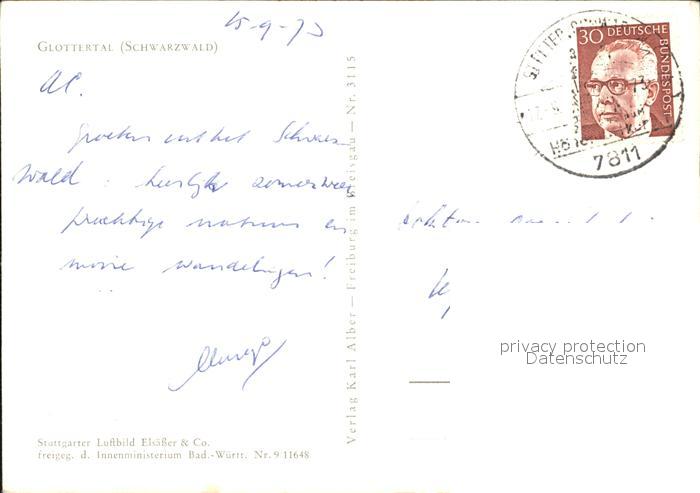 15-9-73
GLOTTERTAL (SCHWARZWALD)
30 DEUTSCHE
BUNDESPOST
7811
Groeten uit het Schwarz-
wald : heerlijk zomerweer
prachtige natuur en
mooie wandelingen!
privacy protection
Datenschutz
Verlag Karl Alber — Freiburg im Breisgau — Nr. 3115
Stuttgarter Luftbild Elsäßer & Co.
freigeg. d. Innenministerium Bad.-Württ. Nr. 9 11648